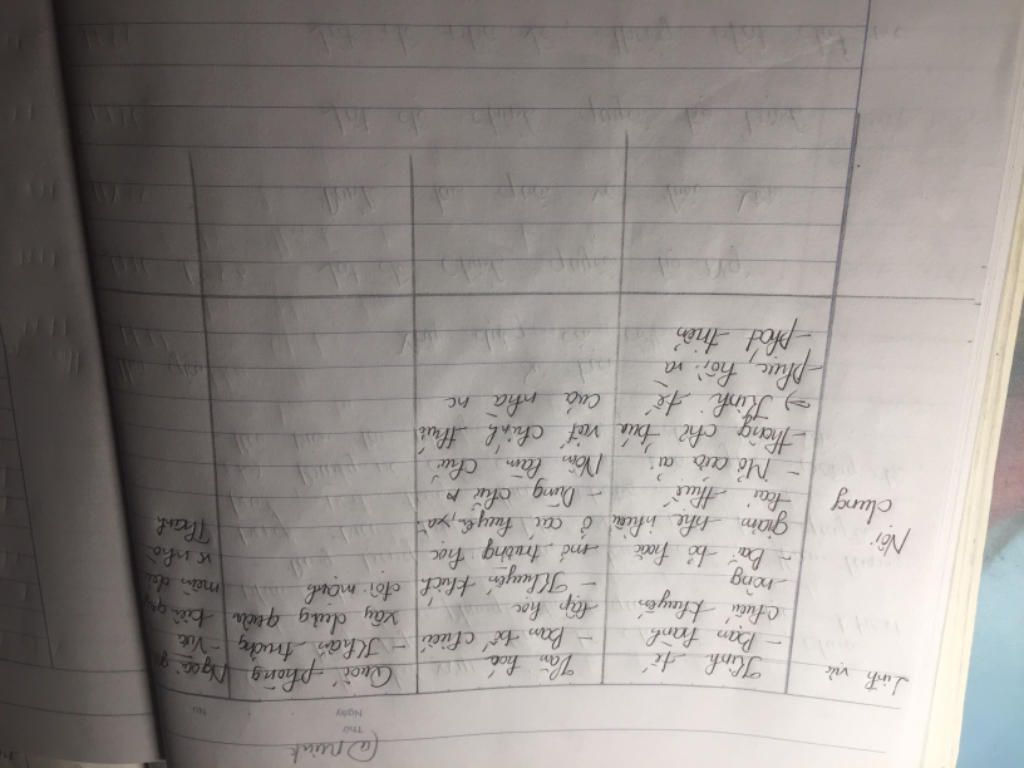 Thứ
Ngày
No.
Lĩnh vực
Kinh tế
Văn hoá
Quốc phòng
Ngoại g
Nội
dung
- Ban hành
chiếu khuyến
nông
- Bãi bỏ hoặc
giảm nhẹ nhiều
loại thuế
- Mở cửa ải
thông chợ búa
=> Kinh tế
phục hồi và
phát triển
- Ban bố chiếu
lập học
- Khuyến khích
mở trường học
ở các huyện, xã
- Dùng chữ
Nôm làm chữ
viết chính thức
của nhà nc
- Khẩn trương
xây dựng quân
đội mạnh
- Vừa
kiên quy
mềm dẻo
vs nhà
Thanh